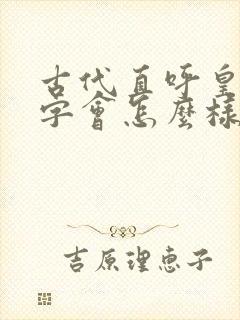 古代直呼皇
字會怎麼樣
吉原理恵子